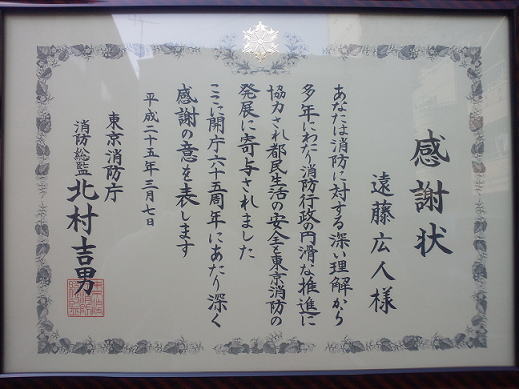 感謝状
遠藤広人様
あなたは消防に対する深い理解から
多年にわたり消防行政の円滑な推進に
協力され都民生活の安全と東京消防の
発展に寄与されました
ここに開庁六十五周年にあたり深く
感謝の意を表します
平成二十五年三月七日
東京消防庁
消防総監 北村吉男